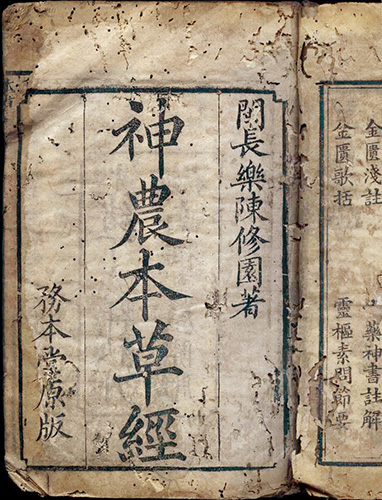 金匱淺註
藥神書註解
金匱歌括
靈樞素問節要
閩長樂陳修園著
神農本草經
務本堂原版